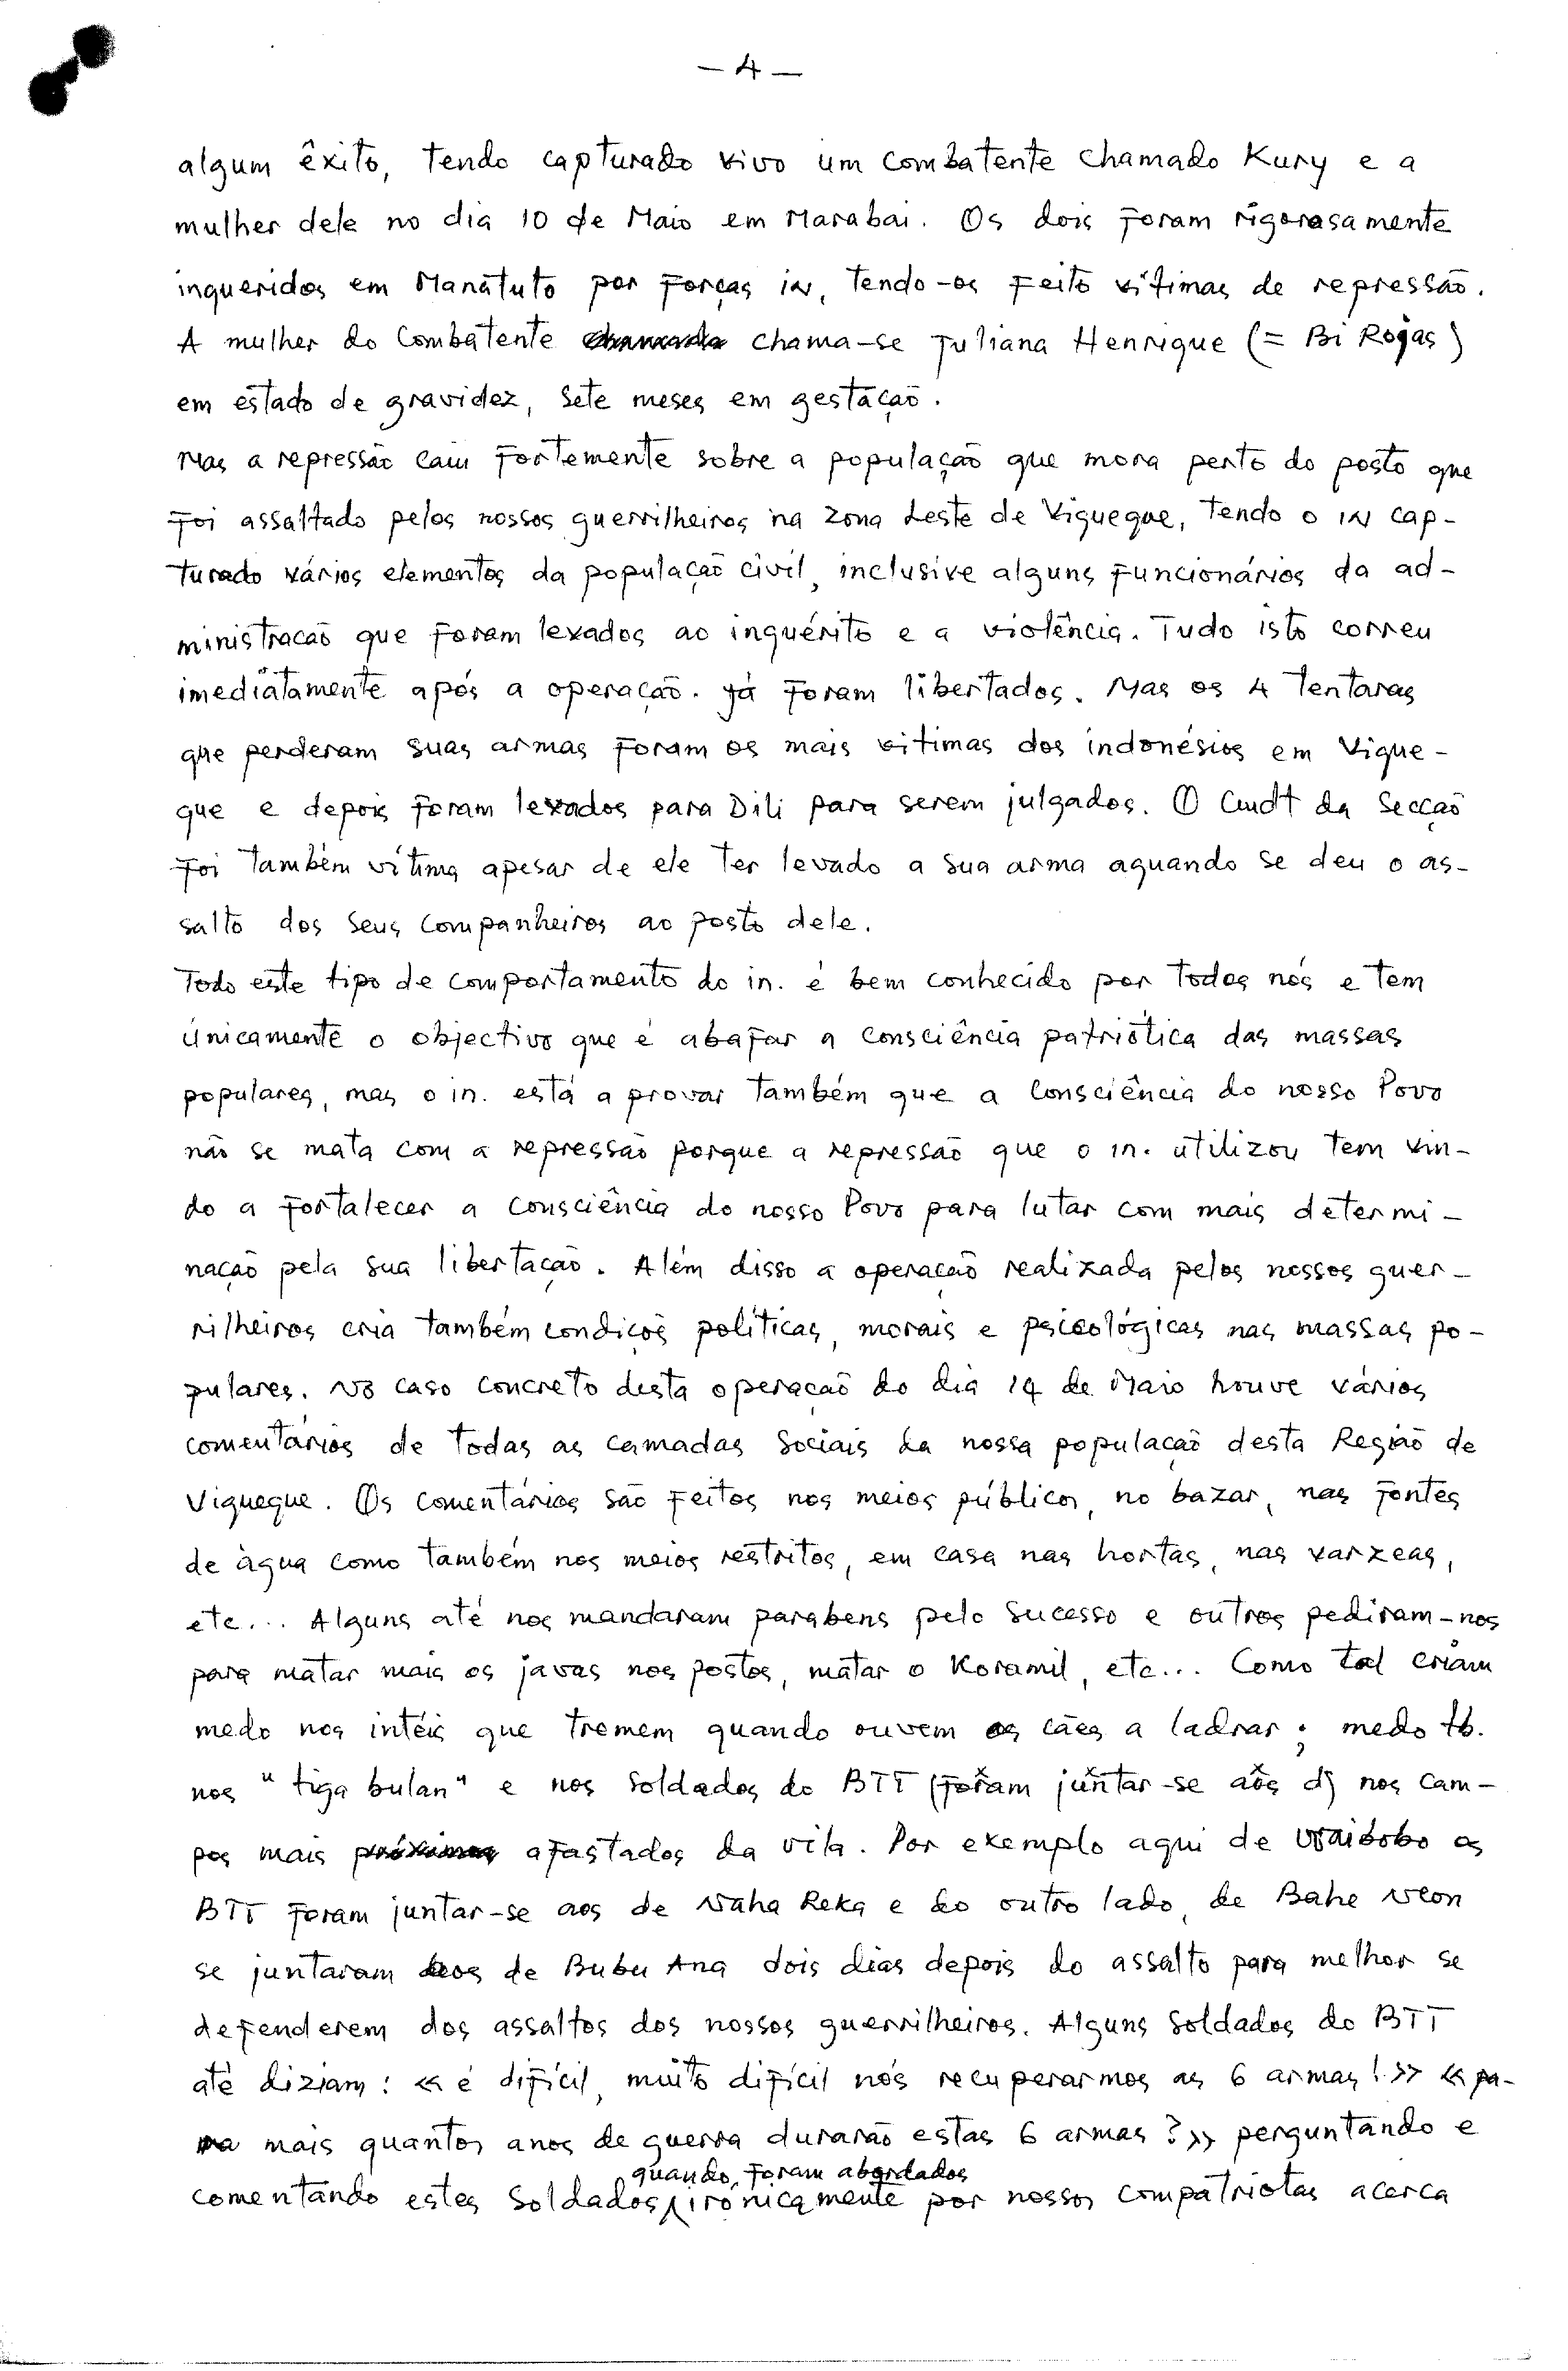 — 4 —
algum êxito, tendo capturado vivo um combatente chamado Kury e a
mulher dele no dia 10 de Maio em Marabai. Os dois foram rigorasamente
inqueridos em Manatuto por forças in, tendo-os feito vítimas de repressão.
A mulher do combatente chama-se Juliana Henrique (= Bi Rojas)
em estado de gravidez, sete meses em gestação.
Mas a repressão caiu fortemente sobre a população que mora perto do posto que
foi assaltado pelos nossos guerrilheiros na zona Leste de Viqueque, tendo o in cap-
turado vários elementos da população civil, inclusive alguns funcionários da ad-
ministracão que foram levados ao inquérito e a violência. Tudo isto correu
imediatamente após a operação. Já foram libertados. Mas os 4 Tentaras
que perderam suas armas foram os mais vitimas dos indonésios em Vique-
que e depois foram levados para Dili para serem julgados. O Cmdt da Secção
foi também vítima apesar de ele ter levado a sua arma aquando se deu o as-
salto dos seus companheiros ao posto dele.
Todo este tipo de comportamento do in. é bem conhecido por todos nós e tem
únicamente o objectivo que é abafar a consciência patriótica das massas
populares, mas o in. está a provar também que a consciência do nosso Povo
não se mata com a repressão porque a repressão que o in. utilizou tem vin-
do a fortalecer a consciência do nosso Povo para lutar com mais determi-
nação pela sua libertação. Além disso a operação realizada pelos nossos guer-
rilheiros cria também condiçoẽs políticas, morais e psicológicas nas massas po-
pulares. No caso concreto desta operação do dia 14 de Maio houve vários
comentários de todas as camadas sociais da nossa população desta Região de
Viqueque. Os comentários são feitos nos meios público, no bazar, nas fontes
de àgua como também nos meios restritos, em casa nas hortas, nas varzeas,
etc... Alguns até nos mandaram parabens pelo sucesso e outros pediram-nos
para matar mais os javas nos postos, matar o Koramil, etc... Como tal criam
medo nos intéis que tremem quando ouvem os cães a ladrar; medo tb.
nos "tiga bulan" e nos soldados do BTT (foram juntar-se aos d) nos cam-
pos mais afastados da vila. Por exemplo aqui de Uaibobo os
BTT foram juntar-se aos de Naha Reka e do outro lado, de Bahe Neon
se juntaram aos de Bubu Ana dois dias depois do assalto para melhor se
defenderem dos assaltos dos nossos guerrilheiros. Alguns soldados do BTT
até diziam: «é difícil, muito difícil nós recuperarmos as 6 armas!» «pa-
ra mais quantos anos de guerra durarão estas 6 armas?» perguntando e
quando, foram abordados
comentando estes soldados, irónicamente por nossos compatriotas acerca